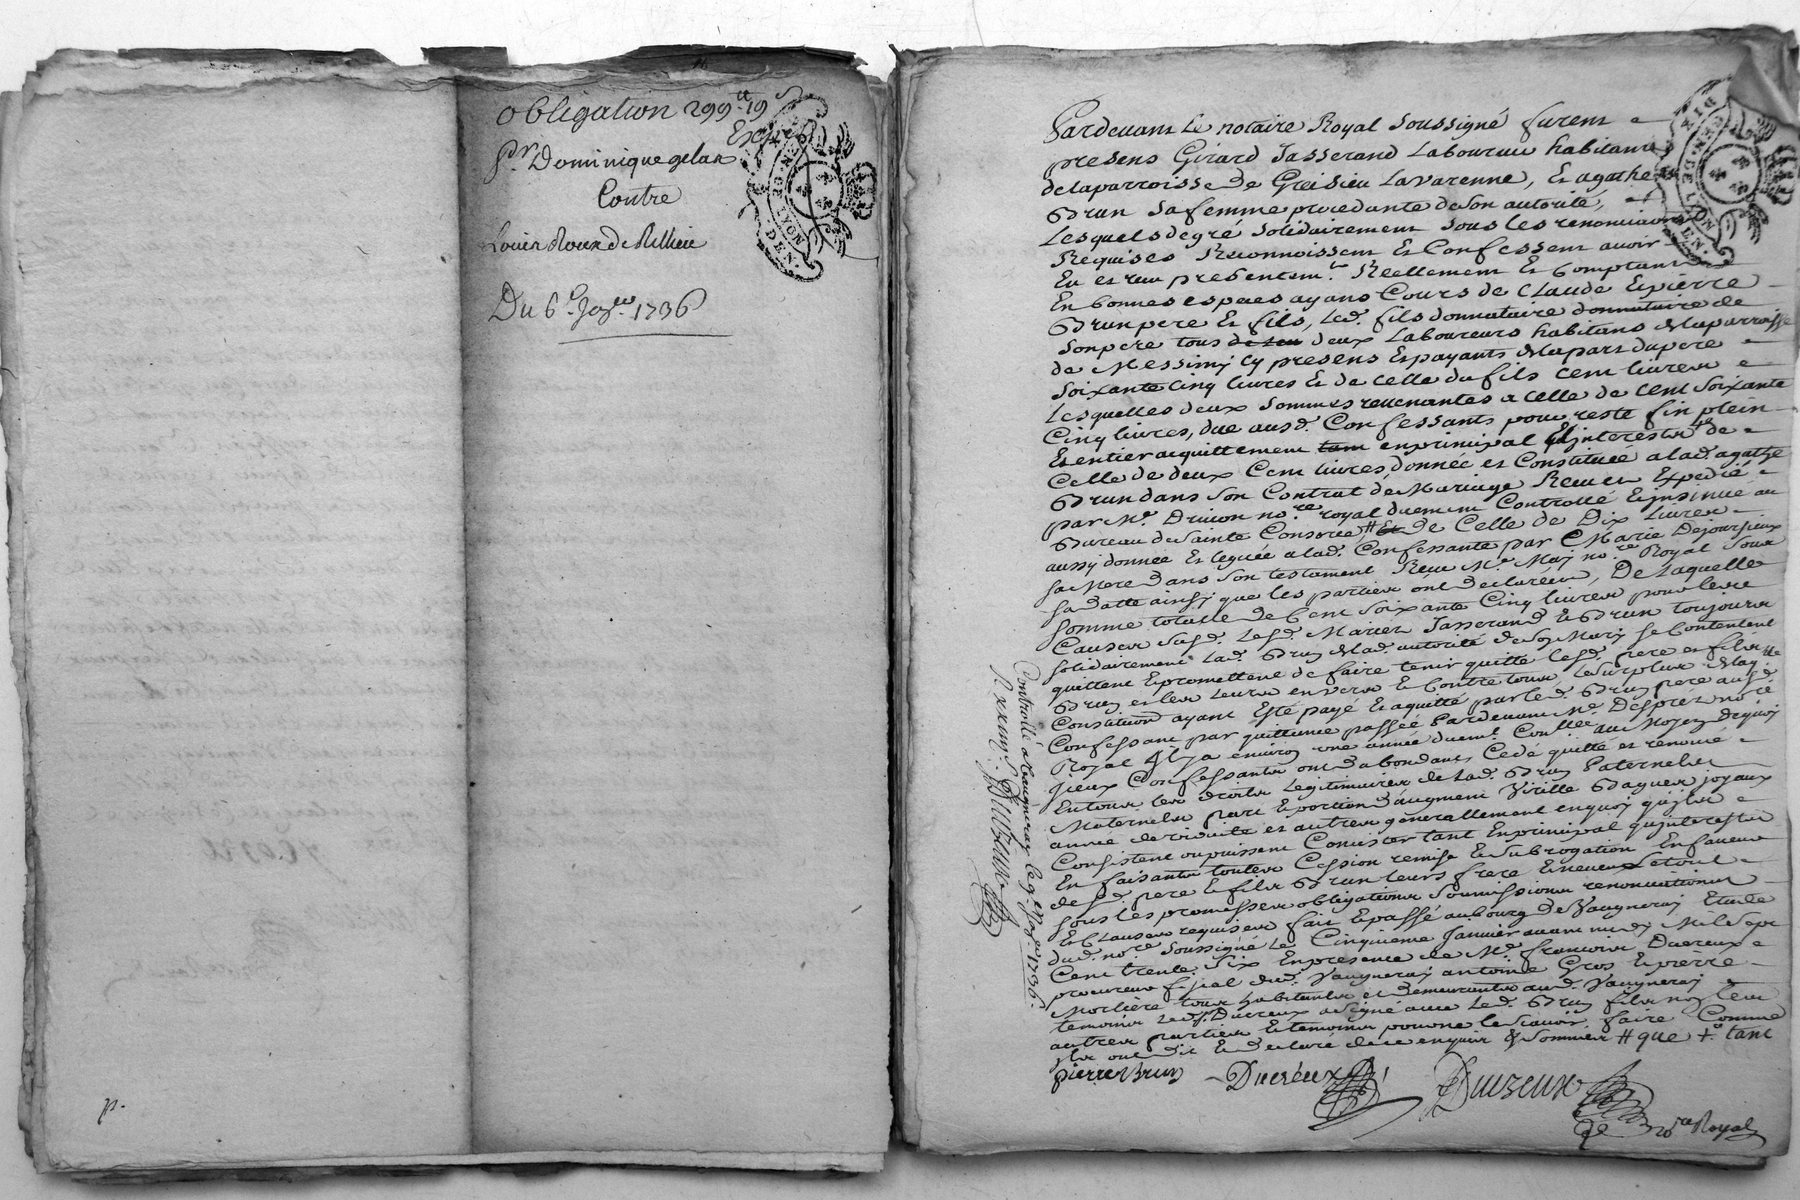 obligation 299tt 19s
Expé
pr. Dominique gelas
Contre
Louis Roux de Rillieu
Du 6e. Janer. 1736
GEN. DE LYON
DEN.
p.
Pardevant Le notaire Royal soussigné furent
presens Girard Jasserand Laboureur habitant
de laparroisse de Greisieu Lavarenne, Et agathe
Brun sa femme procedante de son autorité,
Lesquels de gré solidairement sous les renonciaons
Requises Reconnoissent Et Confessent avoir
Eu et reçu presentemt. Reellement Et Comptant
En bonnes especes ayans Cours de Claude Epierre
Brun pere Et fils, Led. fils donnataire donnataire de
son pere tous deux Laboureurs habitans de laparroisse
de Messimy Cy presens Et payants de lapart du pere
soixante Cinq livres Et de celle du fils Cent livres
Lesquelles deux sommes revenantes a celle de Cent soixante
Cinq livres, due ausd. Confessants pour reste fin plein
Et entier acquittement en principal Et interests de
Celle de deux Cent livres donnée et Constituée a lad. agathe
Brun dans son Contrat de Mariage Receu et Expedié
par Me. Drivon nore. royal duement Controllé Et insinué au
Bureau de Sainte Consorce, # de Celle de Dix Livres
aussy donnée Et leguée a lad. Confessante par Marie Dejoursieux
sa Mere dans son testament Receu Me. May nore. Royal sous
sa datte ainsy que les parties ont declarées, De Laquelle
somme totalle de Cent soixante Cinq livres pour les
Causes susd. Lesd. Mariés Jasserand Et Brun toujours
solidairement Lad. Brun de lad. autorité de son Mary se Contentent
quittent Et promettent de faire tenir quitte lesd. pere et fils
Brun et les Leurs envers Et Contre tous, Le surplus de lad.
Constituon ayant Esté payé Et aquitté par led. Brun pere ausd.
Confessant par quittance passée Pardevant Me. Desprez nore.
Royal Il y a environ une année duemt. Contllée au Moyen de quoy
Iceux Confessants ont d'abondant Cedé quitté et renoncé
En tous les droits Legitimaires de Lad. Brun Paternels
Maternels part Et portion d'augment Virille Bagues joyaux
année de viduité et autres generallement en quoy qu'ils
Consistent ou puissent Consister tant En principal qu'interests
En faisants toutes Cession remise Et subrogation En faveur
desd. pere Et fils Brun leurs frere Et neveux Le tout
sous les promesses obligations soumissions renonciations
Et Clauses requises fait Et passé au bourg de Vaugneray Etude
dud. nore. soussigné Le Cinquieme Janvier avant midy Mil sept
Cent trente six En presence de Me. francois Ducreux
procureur fiscal dud. Vaugneray antoine Gros Et pierre
Morliere tous habitants et demeurants aud. Vaugneray
temoins Led. Sr. Ducreux a signé avec Led. Brun fils non les
autres parties Et temoins pour ne le scavoir faire Comme
ils ont dit Et declaré de ce enquis Et sommés # que +. tant
pierre brun Ducreux Duizeux
nore Royal
Controllé a Vaugneray le 9. en Janer. 1736.